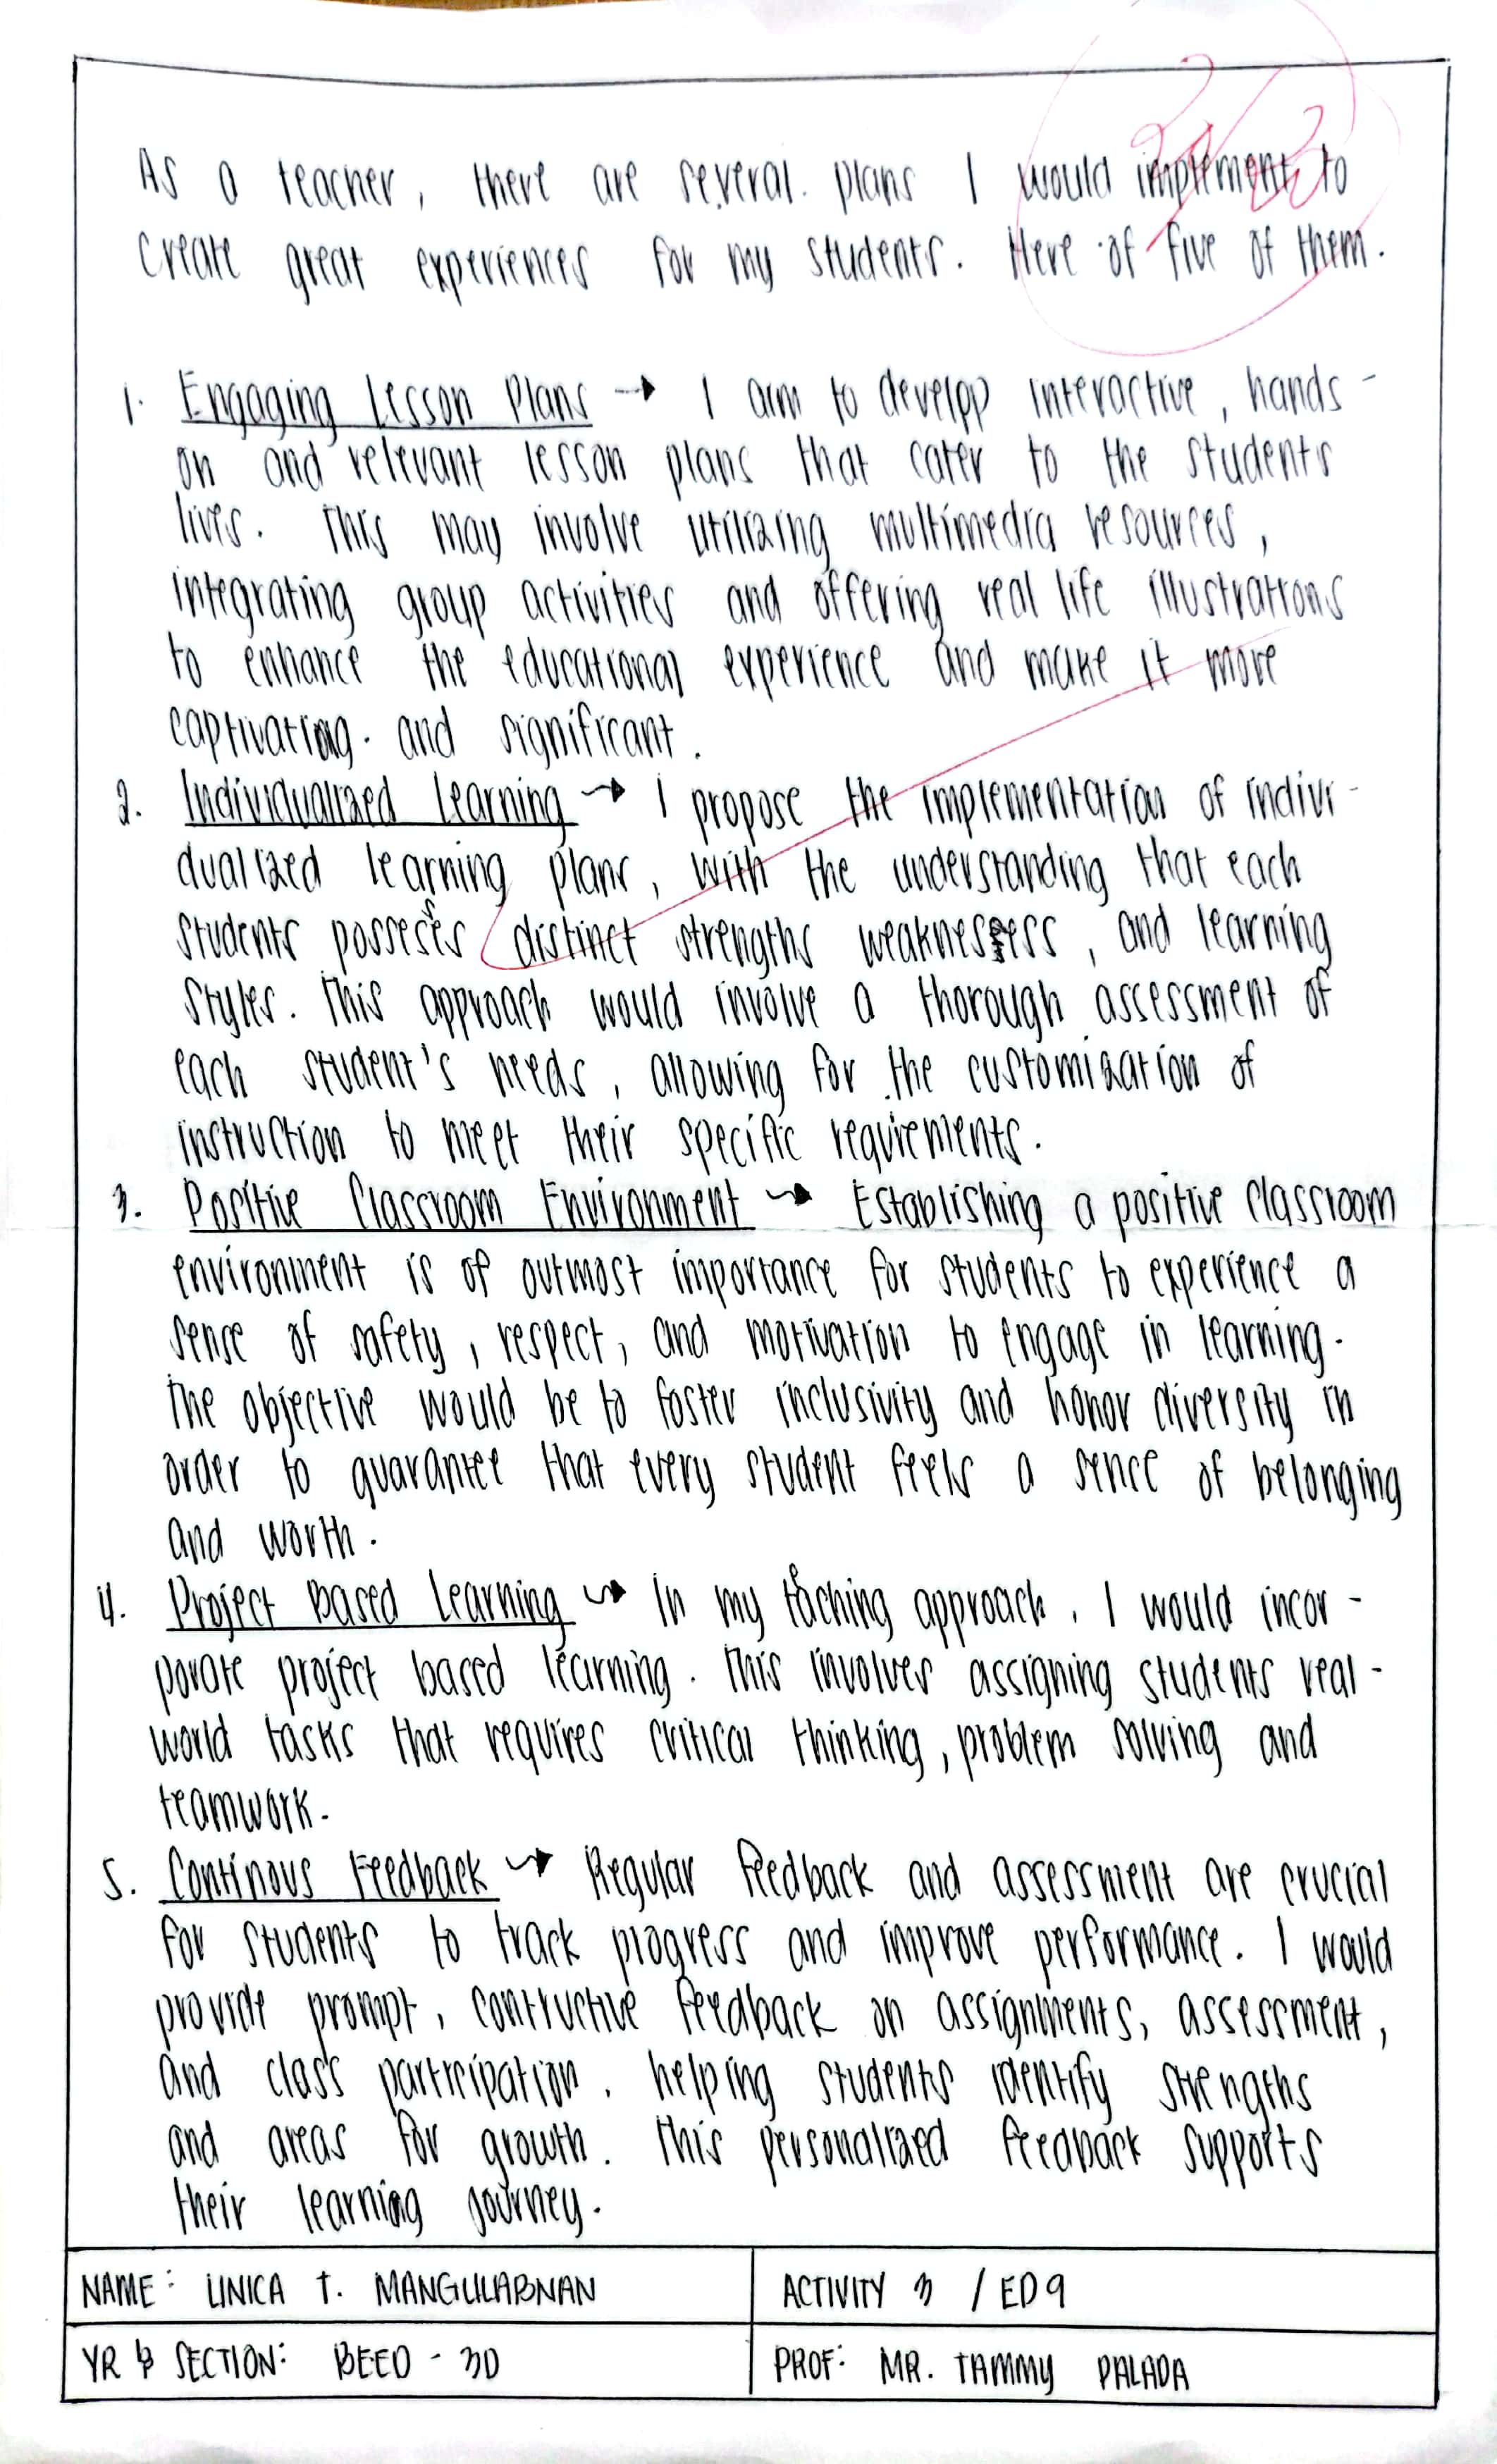 As a teacher, there are several plans I would implement to
create great experiences for my students. Here of five of them.
1. Engaging Lesson Plans → I aim to develop interactive, hands-
on and relevant lesson plans that cater to the students
lives. This may involve utilizing multimedia resources,
integrating group activities and offering real life illustrations
to enhance the educational experience and make it more
captivating. and significant.
2. Individualized Learning → I propose the implementation of indivi-
dualized learning plans, with the understanding that each
students posseses distinct strengths weaknesess, and learning
styles. This approach would involve a thorough assessment of
each student's needs, allowing for the customization of
instruction to meet their specific requirements.
3. Positive Classroom Environment → Establishing a positive classroom
environment is of outmost importance for students to experience a
sense of safety, respect, and motivation to engage in learning.
The objective would be to foster inclusivity and honor diversity in
order to guarantee that every student feels a sence of belonging
and worth.
4. Project Based Learning → In my teaching approach, I would incor-
porate project based learning. This involves assigning students real-
world tasks that requires critical thinking, problem solving and
teamwork.
5. Continous Feedback → Regular feedback and assessment are crucial
for students to track progress and improve performance. I would
provide prompt, contructive feedback on assignments, assessment,
and class participation, helping students identify strengths
and areas for growth. This personalized feedback supports
their learning journey.
NAME: LINICA T. MANGULABNAN
ACTIVITY 3 / ED9
YR & SECTION: BEED - 3D
PROF: MR. TAMMY PALADA